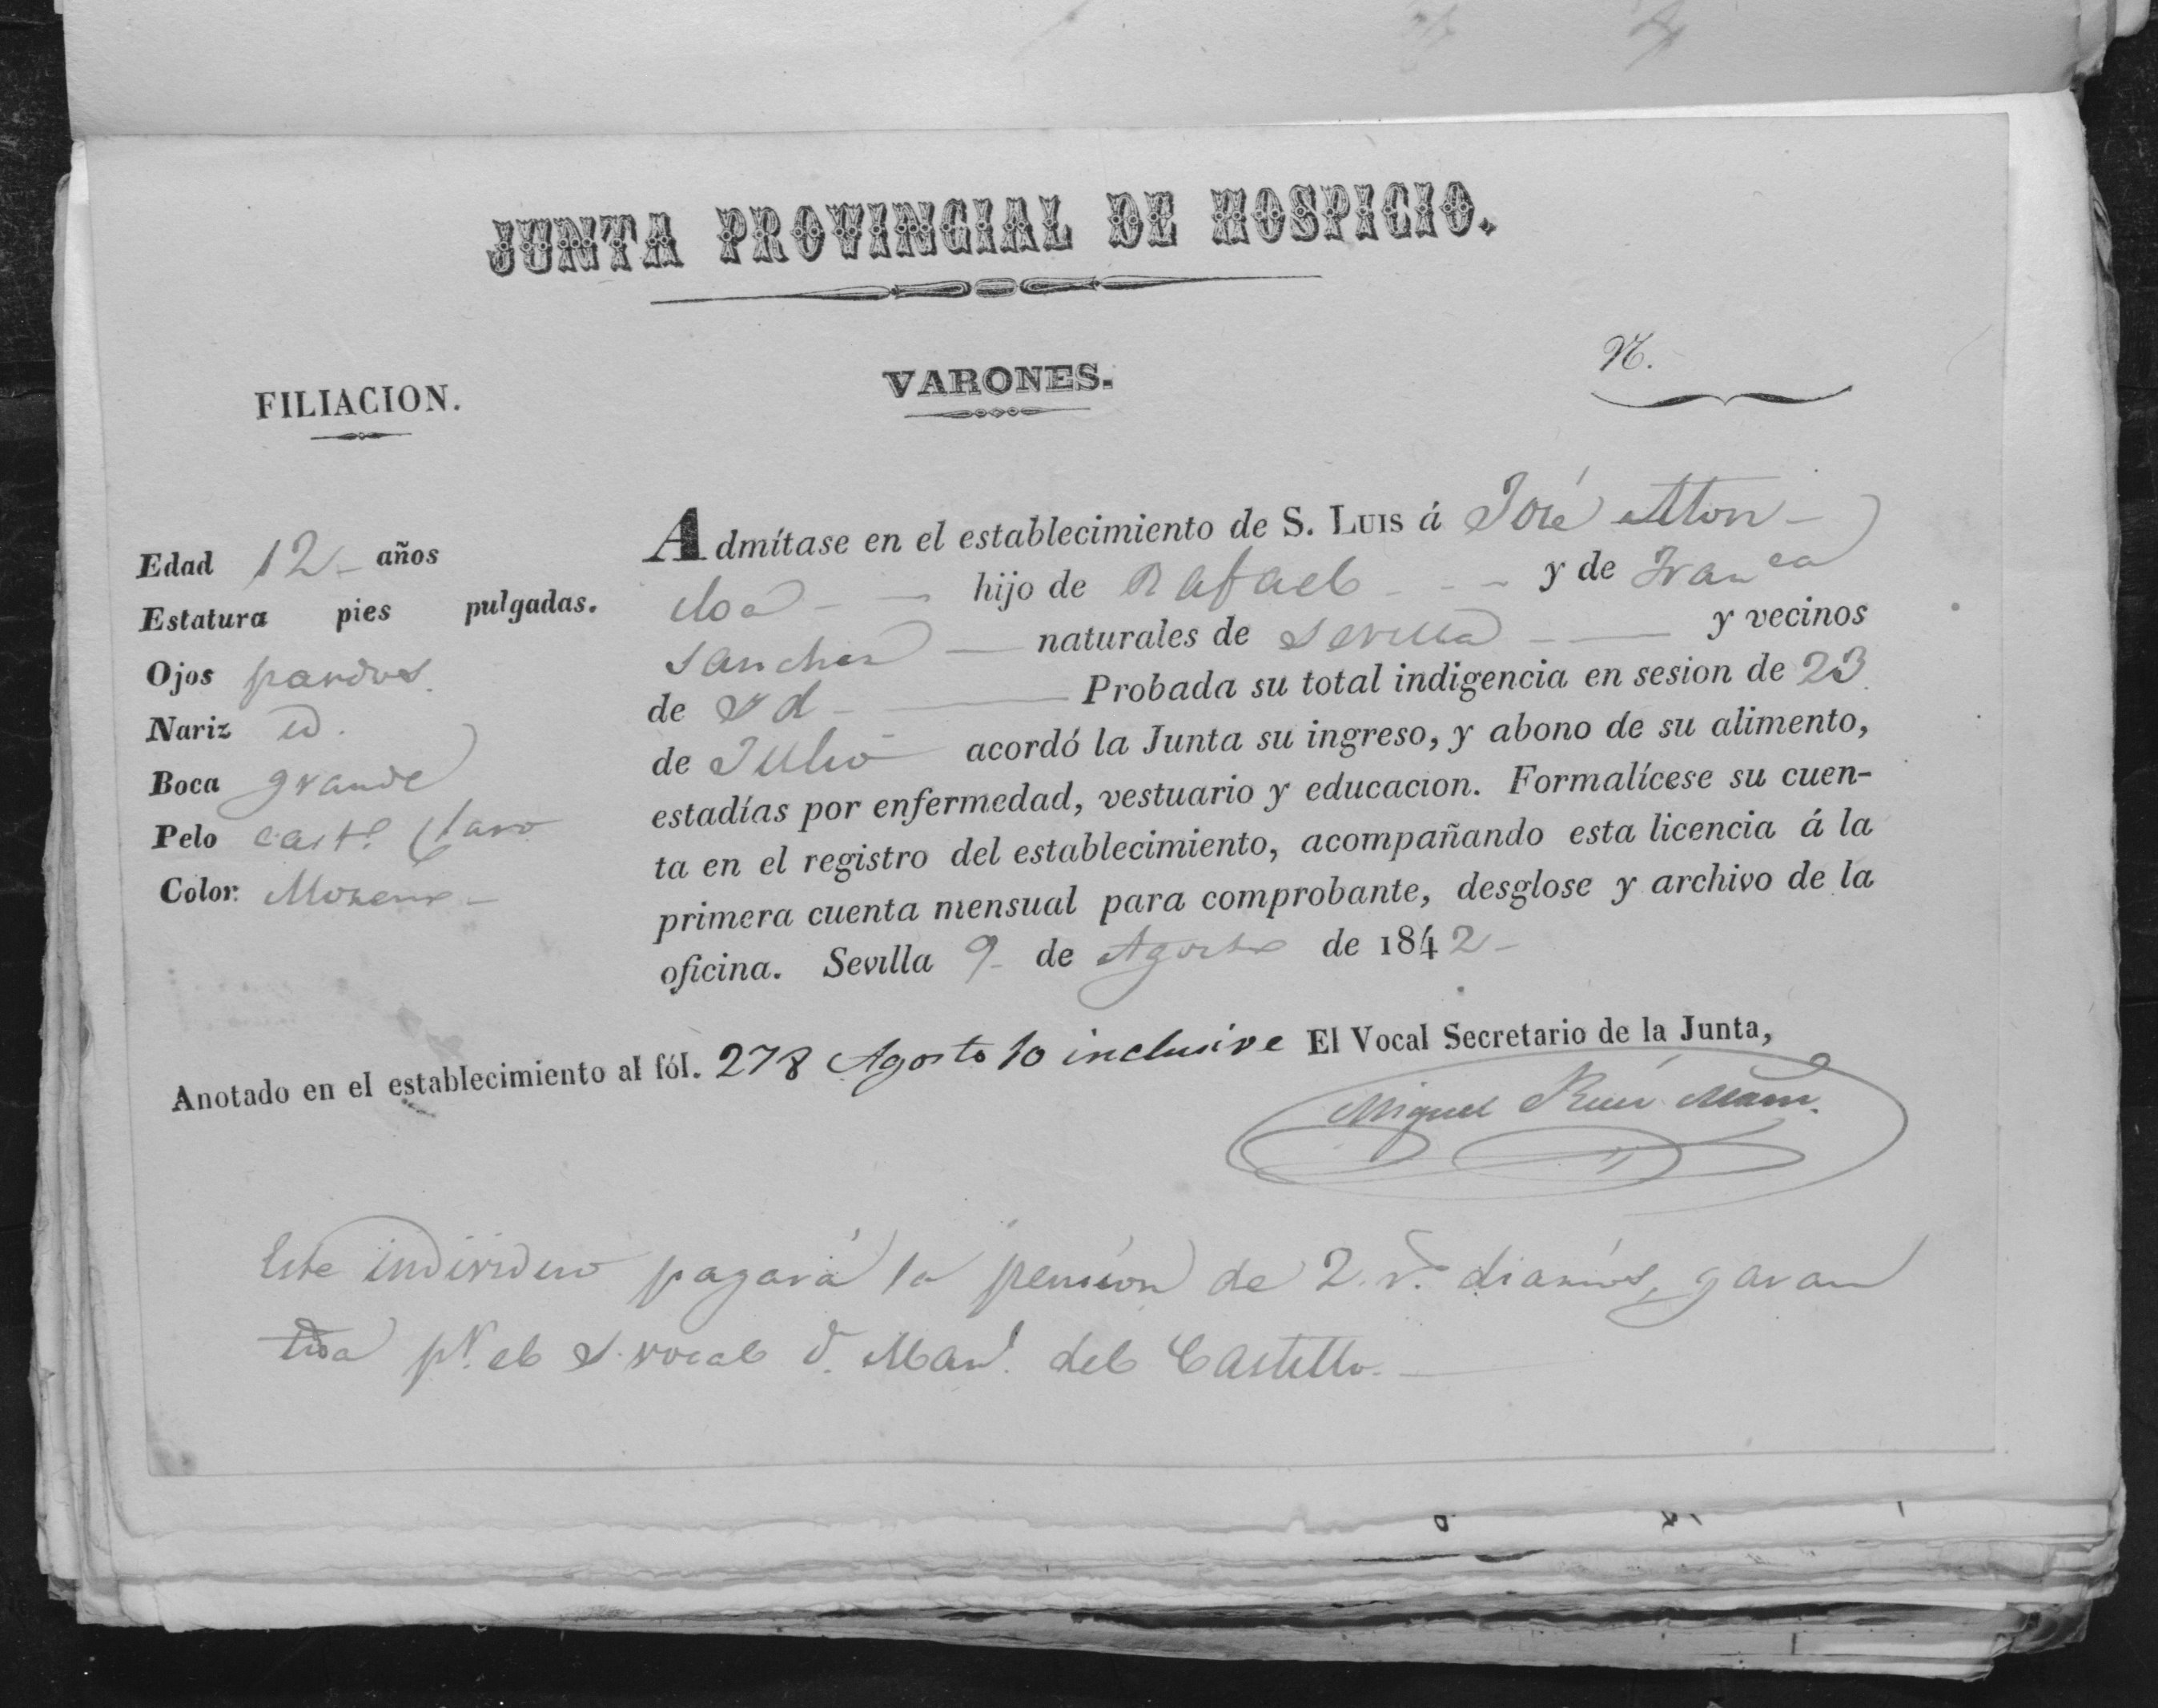 JUNTA PROVINCIAL DE HOSPICIO.
VARONES.
N.
FILIACION.
Edad 12 años
Estatura pies pulgadas.
Ojos pardos
Nariz id.
Boca grande
Pelo cast.º claro
Color: Moreno
Admítase en el establecimiento de S. LUIS á José Mon-
cloa hijo de Rafael y de Fran.ca
Sanchez naturales de Sevilla y vecinos
de id Probada su total indigencia en sesion de 23
de Julio acordó la Junta su ingreso, y abono de su alimento,
estadías por enfermedad, vestuario y educacion. Formalícese su cuen-
ta en el registro del establecimiento, acompañando esta licencia á la
primera cuenta mensual para comprobante, desglose y archivo de la
oficina. Sevilla 9 de Agosto de 1842
Anotado en el establecimiento al fól. 278 Agosto 10 inclusive El Vocal Secretario de la Junta,
Miguel Ruiz
Este individuo pagará la pension de 2 r.s diarios, garan
tida p.r el S. vocal D. Man.l del Castillo.